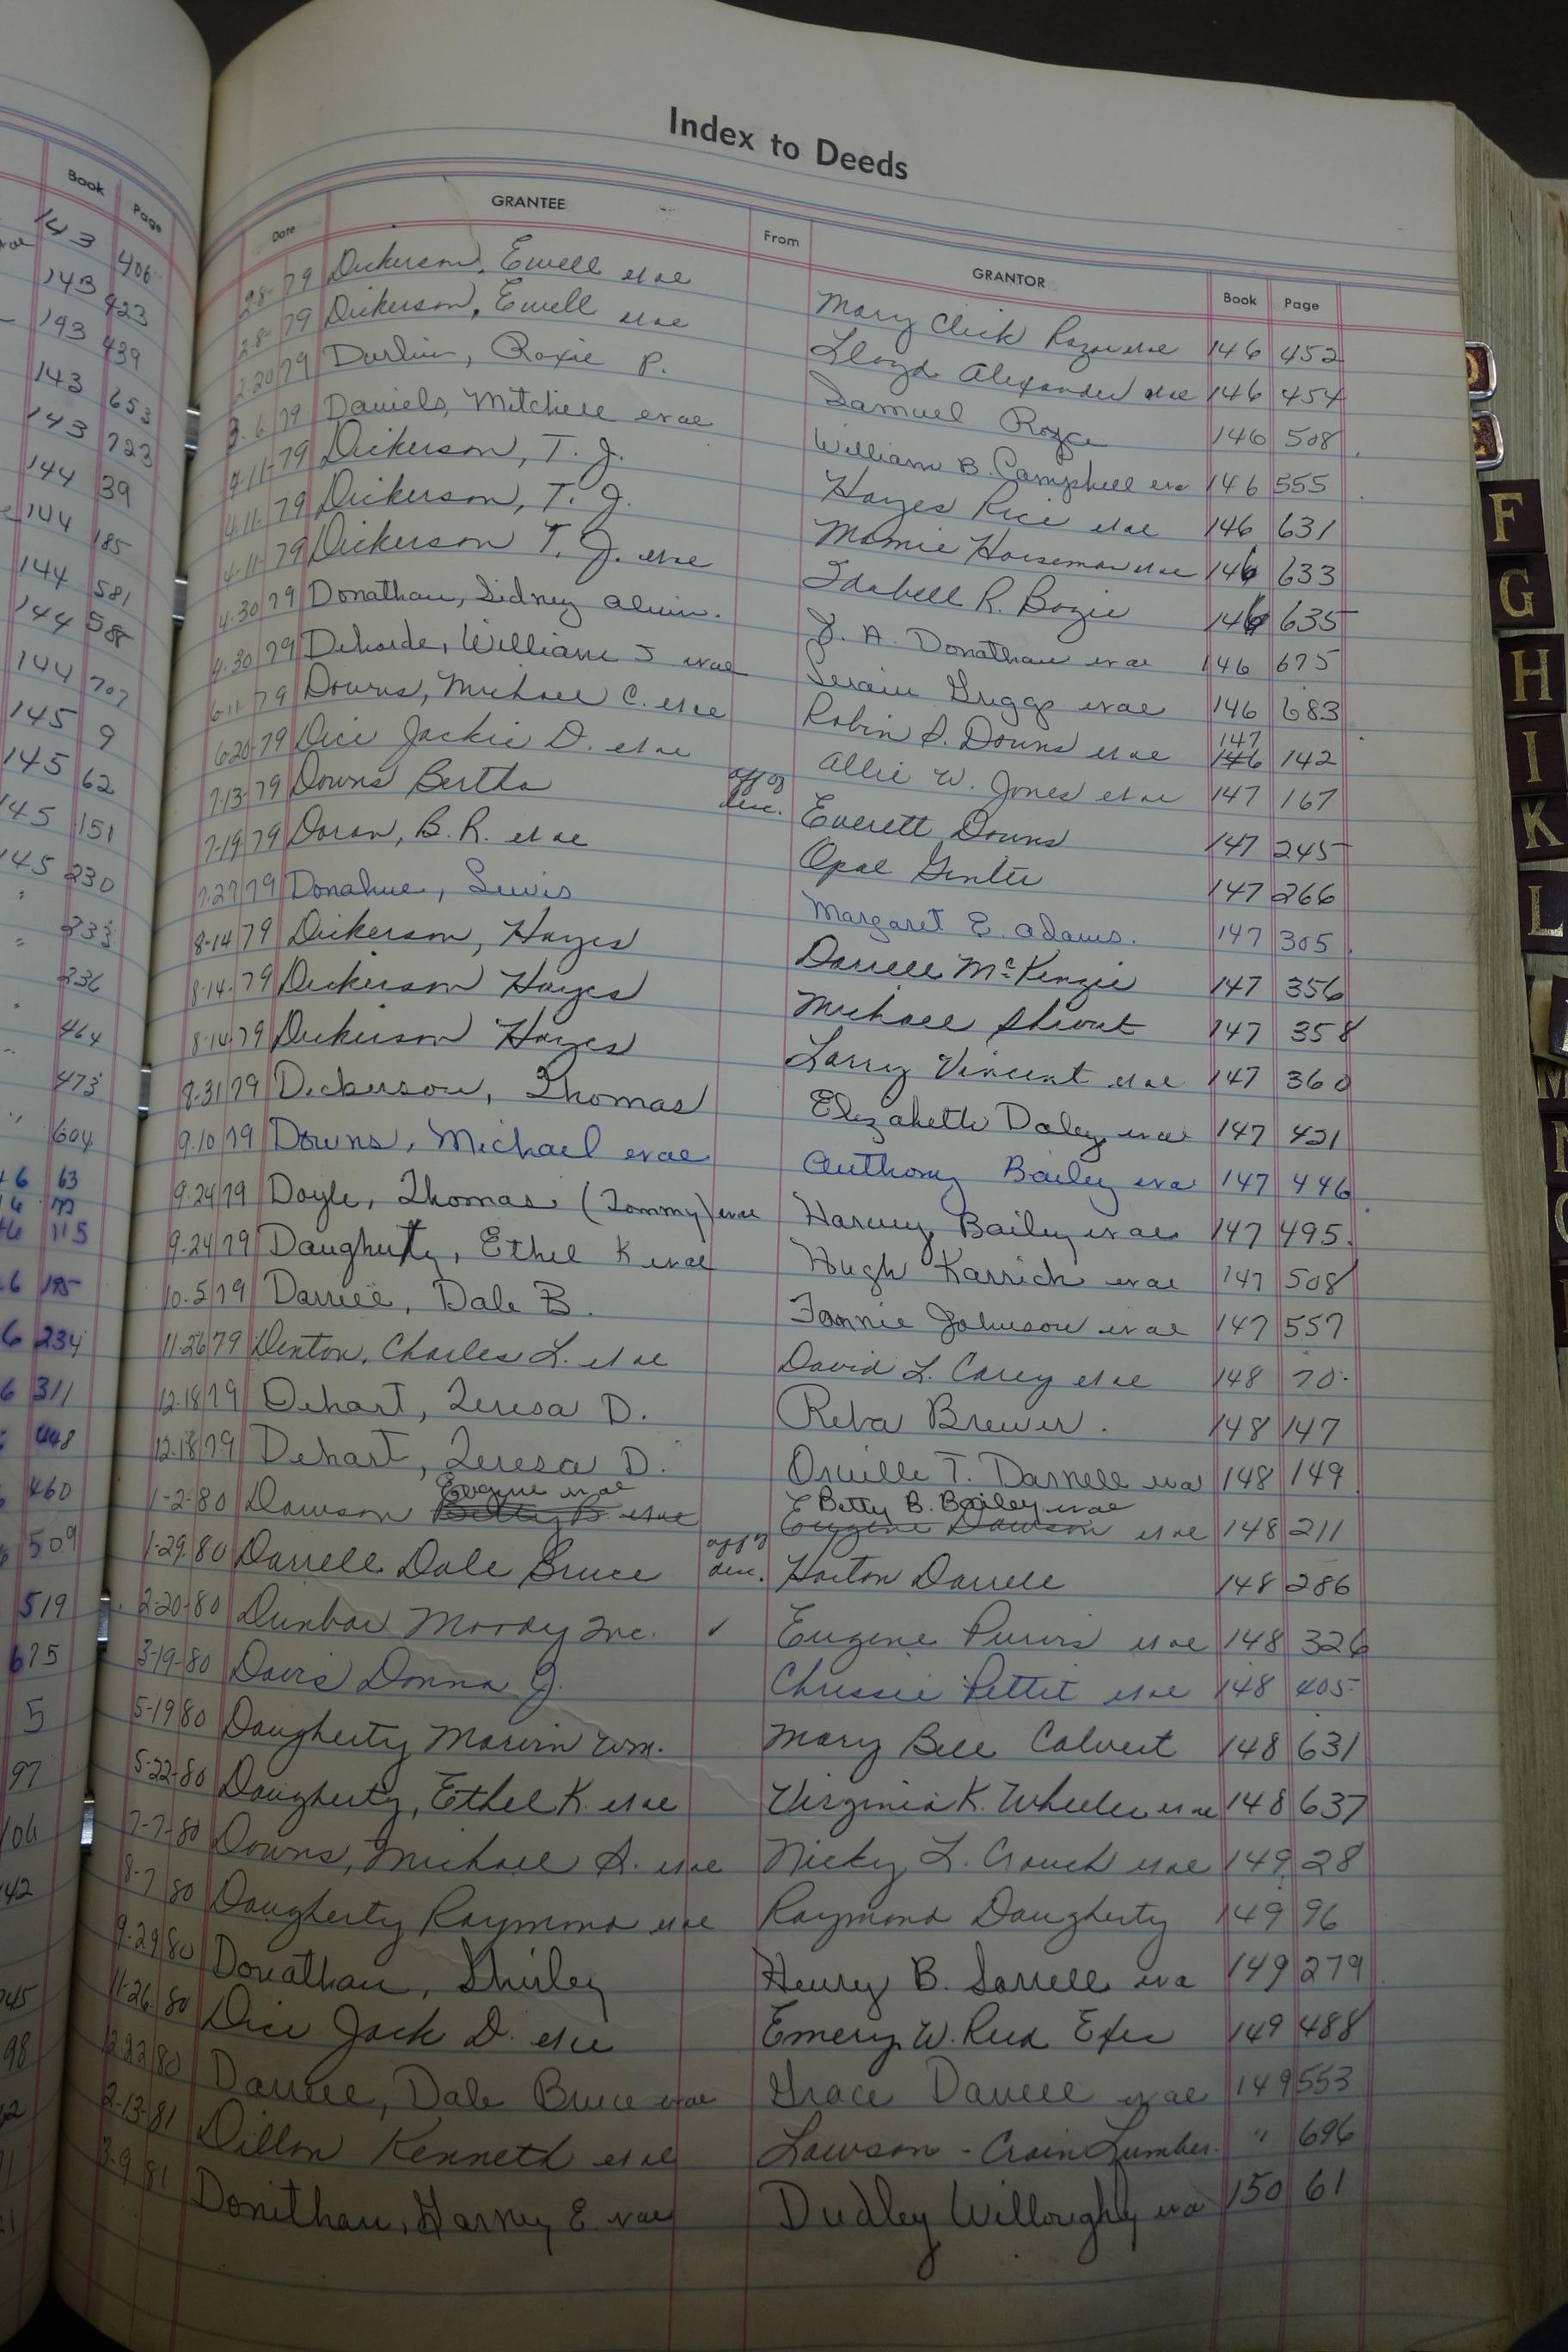 Index to Deeds
Date GRANTEE From GRANTOR Book Page
2-8-79 Dickerson, Ewell et al Mary Click et al 146 452
2-8-79 Dickerson, Ewell et al Lloyd Alexander et al 146 454
2-20 79 Roxie P. Samuel Royce 146 508
3-6 79 Daniels, Mitchell et al William B. Campbell et al 146 555
4-11-79 Dickerson, T. J. Hayes Rice et al 146 631
4-11-79 Dickerson, T. J. Mamie Horseman et al 146 633
4-11-79 Dickerson T. J. et al Idabell R. Bozie 146 635
4-30 79 Donathan, Sidney Alvin. J. A. Donathan et al 146 675
4-30 79 Dehorde, William J et al Griggs et al 146 683
6-11-79 Downs, Michael C. et al Robin S. Downs et al 147 142
6-20-79 Dice Jackie D. et al Allie W. Jones et al 147 167
7-13-79 Downs Bertha aff of desc. Everett Downs 147 245
7-19 79 Doran, B. R. et al Opal Ginter 147 266
7-27 79 Donahue, Lewis Margaret E. Adams. 147 305
8-14 79 Dickerson, Hayes Darrell McKenzie 147 356
8-14-79 Dickerson Hayes Michael Shrout 147 358
8-14-79 Dickerson Hayes Larry Vincent et al 147 360
8-31 79 Dickerson, Thomas Elizabeth Daley et al 147 421
9-10 79 Downs, Michael et al Anthony Bailey et al 147 446
9-24 79 Doyle, Thomas (Tommy) et al Harvey Bailey et al 147 495
9-24 79 Daugherty, Ethel K et al Hugh Karrick et al 147 508
10-5 79 Darrell, Dale B. Fannie Johnson et al 147 557
11-26 79 Denton, Charles L. et al David L. Carey et al 148 70
12-18 79 Dehart, Teresa D. Reba Brewer. 148 147
12-18 79 Dehart, Teresa D. Orville T. Darnell et al 148 149
Eugene et al Betty B. Bailey et al
1-2-80 Dawson Betty B et al Eugene Dawson et al 148 211
1-29-80 Darrell Dale Bruce aff of desc. Horton Darrell 148 286
2-20-80 Dunbar Moody Inc. ✓ Eugene Purvis et al 148 326
3-19-80 Davis Donna J. Chrissie Pettit et al 148 405
5-19 80 Daugherty Marvin Wm. Mary Bell Calvert 148 631
5-22-80 Daugherty, Ethel K. et al Virginia K. Wheeler et al 148 637
7-7-80 Downs, Michael S. et al Nicky L. Crouch et al 149 28
8-7 80 Daugherty Raymond et al Raymond Daugherty 149 96
9-29 80 Donathan, Shirley Henry B. Sorrell et al 149 279
11-26-80 Dice Jack D. et al Emery W. Reed Exec 149 488
12-22 80 Darrell, Dale Bruce et al Grace Darrell et al 149 553
2-13-81 Dillon Kenneth et al Lawson-Crain Lumber. " 696
3-9 81 Donithan, Harney E. et al Dudley Willoughby et al 150 61
Book Page
143 406
143 423
143 439
143 653
143 723
144 39
144 185
144 581
144 588
144 707
145 9
145 62
145 151
145 230
" 233
" 236
" 464
473
" 604
63
115
195
234
311
448
460
509
519
675
5
97
F
G
H
I
K
L
M
N